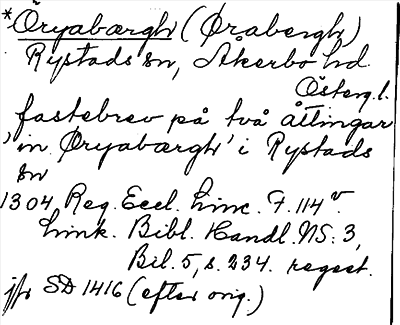 *Öryabærgh (Ørabergh)
Rystads sn, Åkerbo hd.
Österg.l.
fastebrev på två åttingar
'in Øryabærgh' i Rystads
sn
1304 Reg. Eccl. Linc. F. 114 v.
Link. Bibl. Handl. NS: 3,
Bil. 5, s. 234. regest.
jfr SD 1416 (efter orig.)